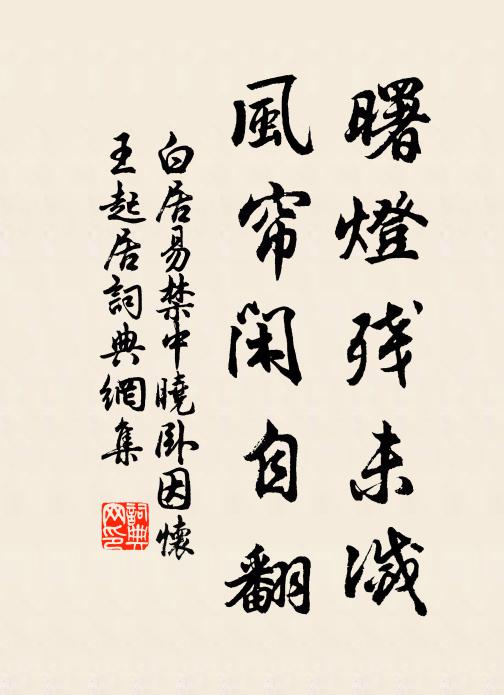 曙燈残未滅
風帘闲自翻
白居易禁中曉卧因懷
王起居詞典網集
詞典
网印